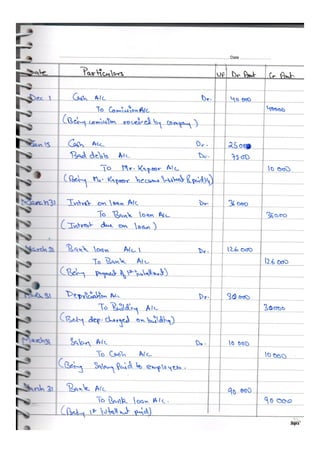 Date
Date Particulars L/F Dr Amt Cr Amt
Dec 1 Cash A/c Dr. 40 000
To Comission A/c 40000
(Being comission received by company)
Jan 15 Cash A/c Dr. 2500
Bad debts A/c Dr. 7500
To Mr. Kapoor A/c 10 000
(Being Mr. Kapoor became
March 31 Intrest on loan A/c Dr 36000
To Bank loan A/c 36000
(Intrest due on loan)
March 31 Bank loan A/c Dr. 126 000
To Bank A/c 126 000
(Being payment of 1st
March 31 Depriciation A/c Dr.
To Building A/c
(Being dep. charged on building)
March 31 Salary A/c Dr. 10 000
To Cash A/c 10000
(Being Salary Paid to employees.
March 31 Bank A/c 90 000
To Bank loan A/c. 90 000
(Being 1st paid)